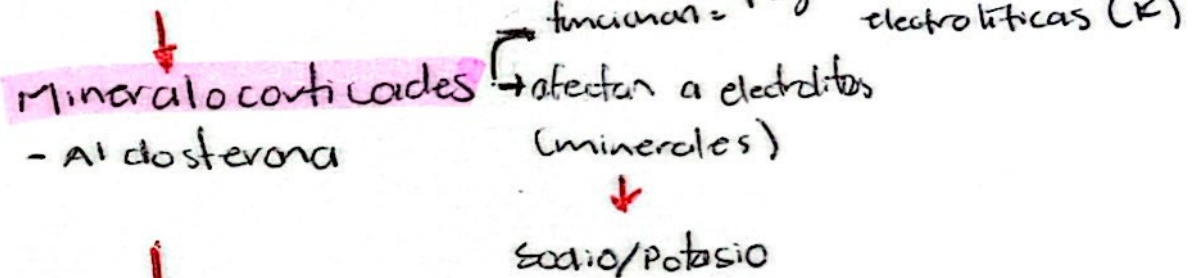 funcionan= electrolíticas (K)
Mineralocorticoides → afectan a electrolitos
- Aldosterona (minerales)
Sodio/Potasio